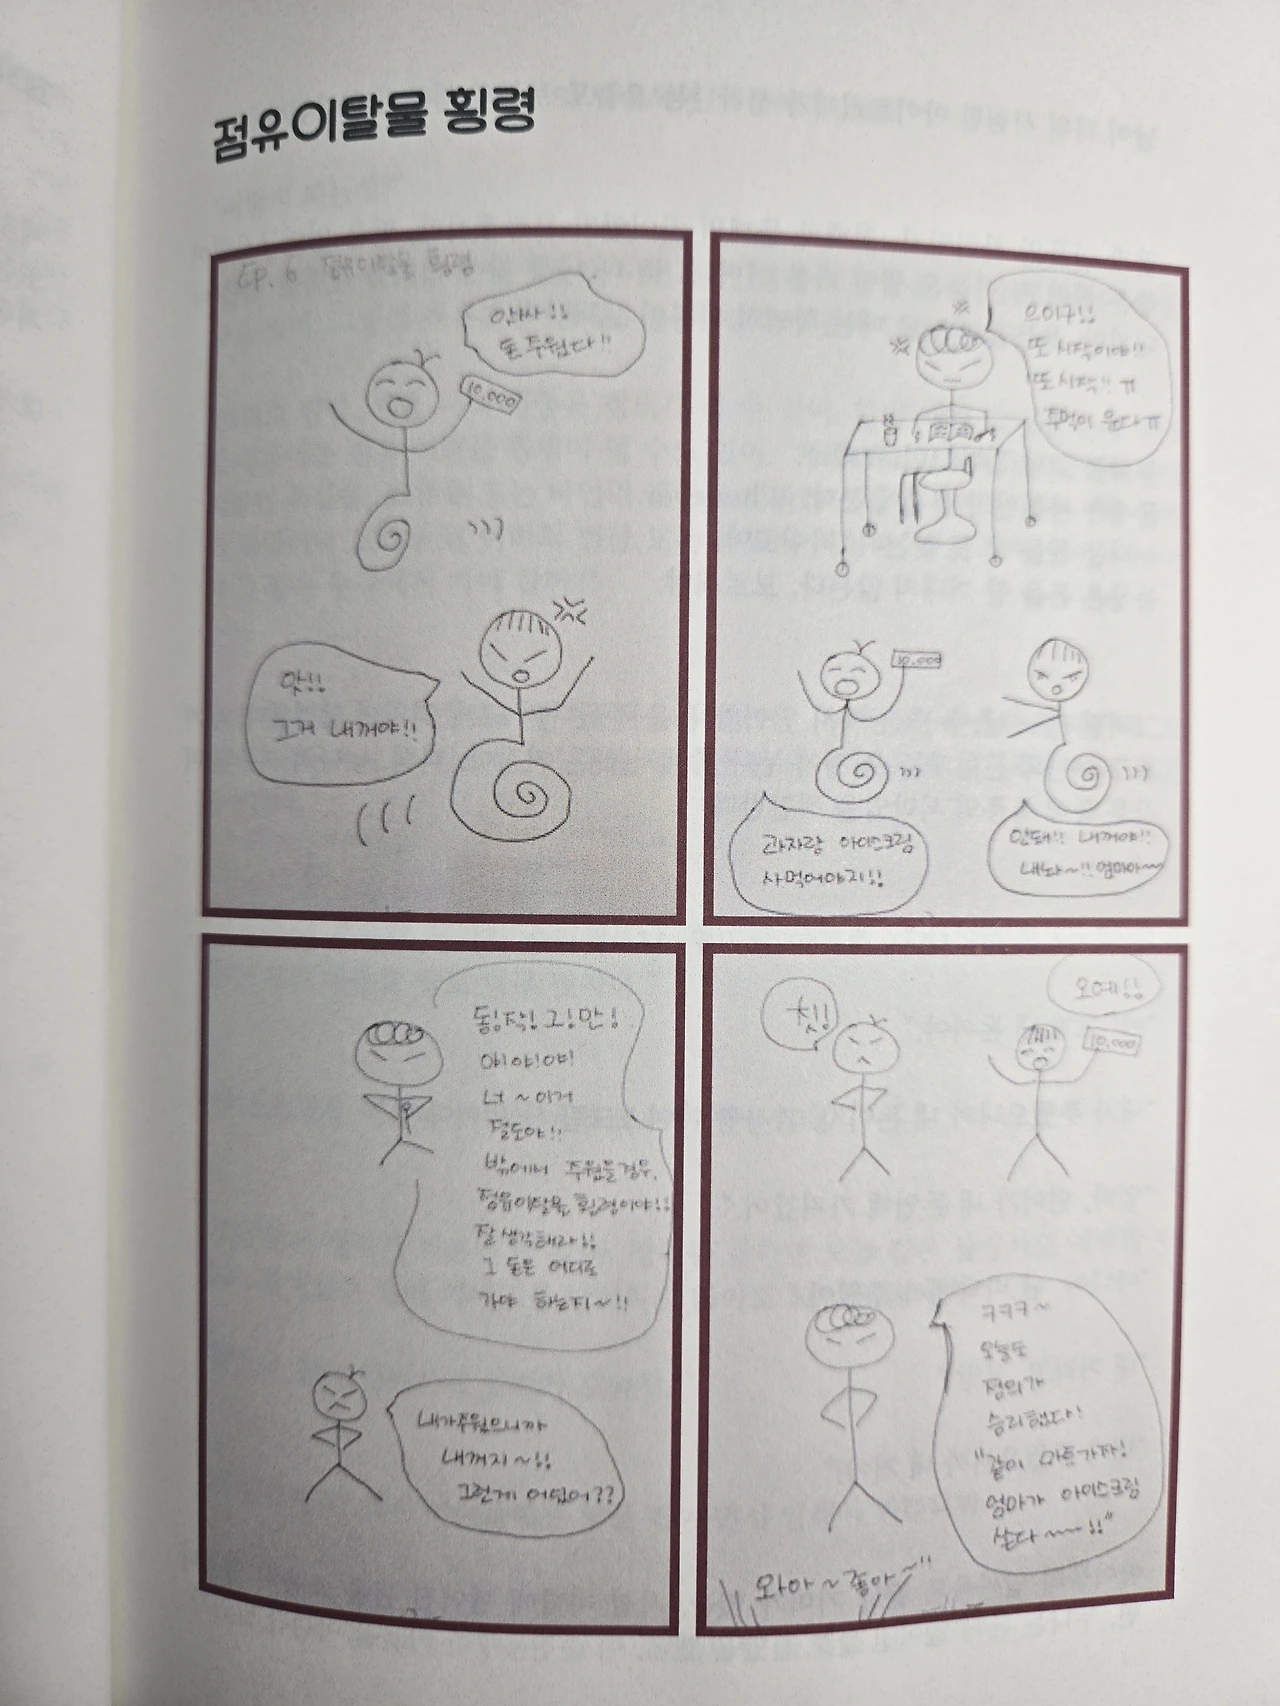 점유이탈물 횡령
EP. 6 점유이탈물 횡령
앗싸!!
돈 주웠다!!
10.000
앗!!
그거 내꺼야!!
으이구!!
또 시작이야!!
또 시작!! ㅠ
주먹이 운다ㅠ
10.000
과자랑 아이스크림
사먹어야지!!
안돼!! 내꺼야!!
내놔~!! 엄마아~~
동!작!그!만!
야!야!야!
너 ~ 이거
절도야!!
밖에서 주웠을경우,
점유이탈물 횡령이야!!
잘 생각해라!!
그 돈은 어디로
가야 하는지~!!
내가주웠으니까
내꺼지~!!
그런게 어딨어??
칫!!
오예!!
10.000
ㅋㅋㅋ~
오늘도
정의가
승리했다!
"같이 마트가자!
엄마가 아이스크림
쏜다~~!!"
와아~좋아~"